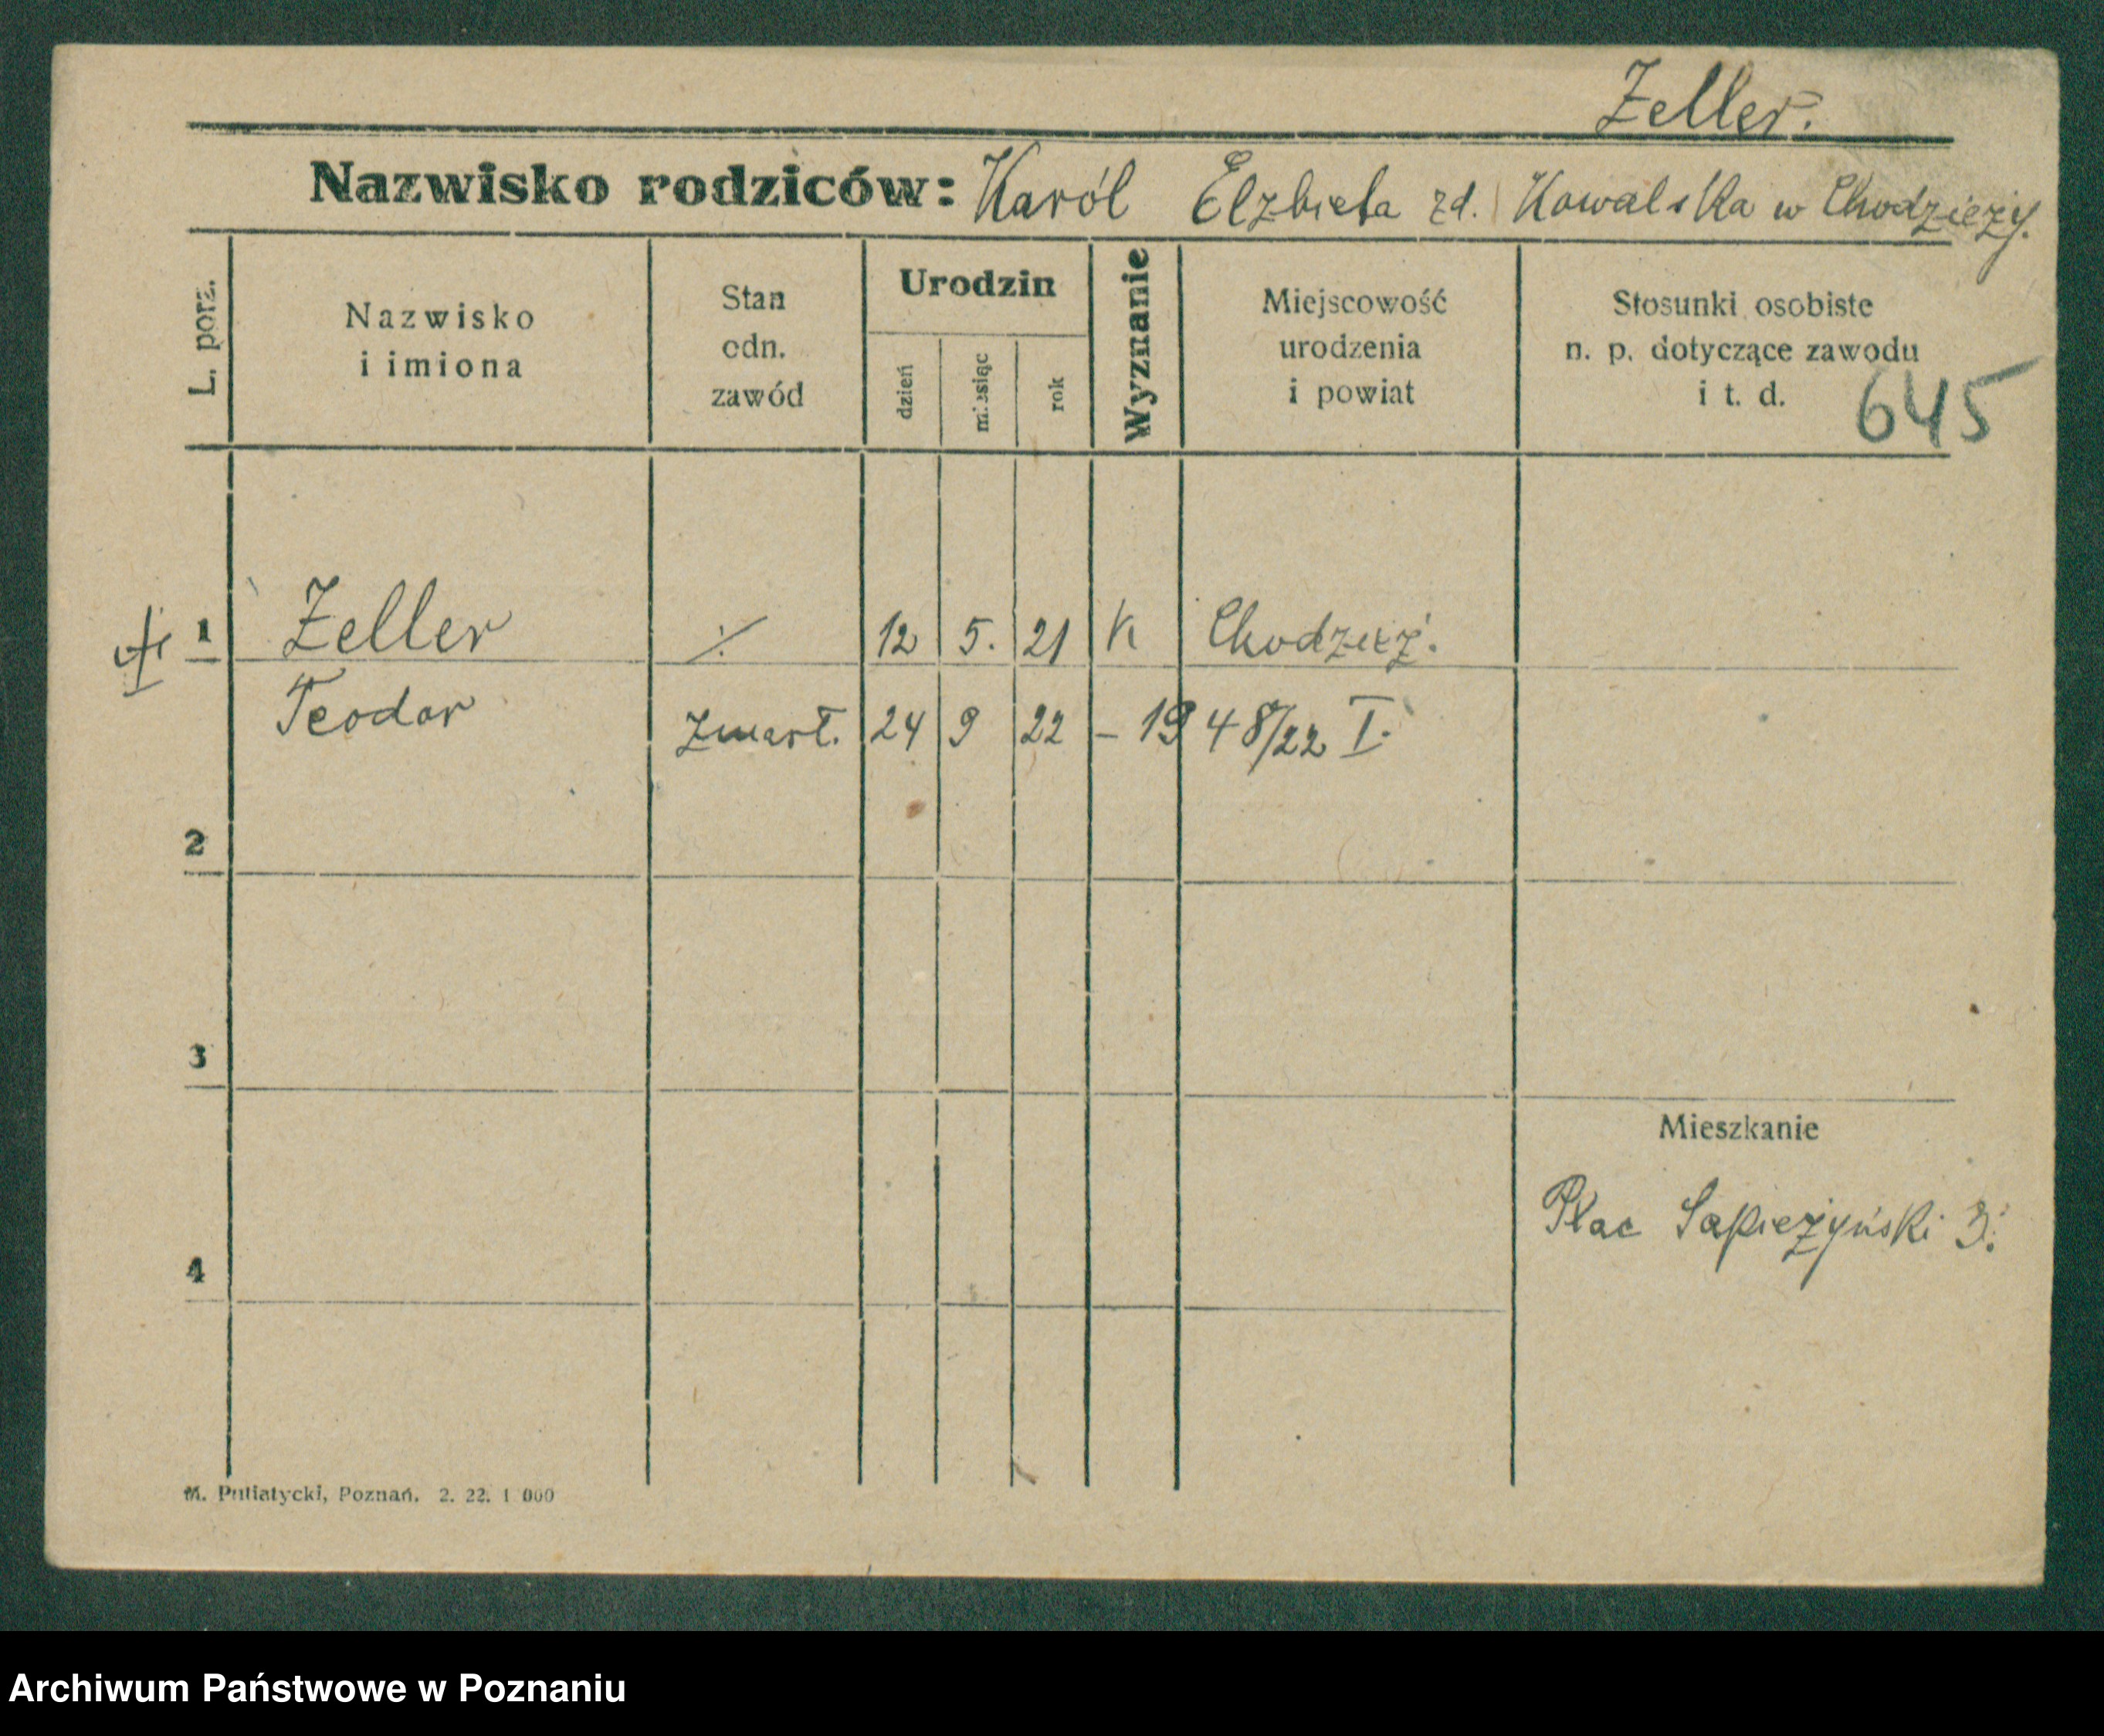 Zeller.
Nazwisko rodziców: Karól Elzbieta zd. Kowalska w Chodzieży.
L. porz.
Nazwisko
i imiona
Stan
odn.
zawód
Urodzin
dzień
miesiąc
rok
Wyznanie
Miejscowość
urodzenia
i powiat
Stosunki osobiste
n. p. dotyczące zawodu
i t. d.
645
1 Zeller ./. 12 5. 21 K Chodzież.
Teodor zmarł. 24 9 22 – 1948/22 I.
2
3
Mieszkanie
Plac Sapieżyński 3.
4
M. Putiatycki, Poznań. 2. 22. 1 000
Archiwum Państwowe w Poznaniu